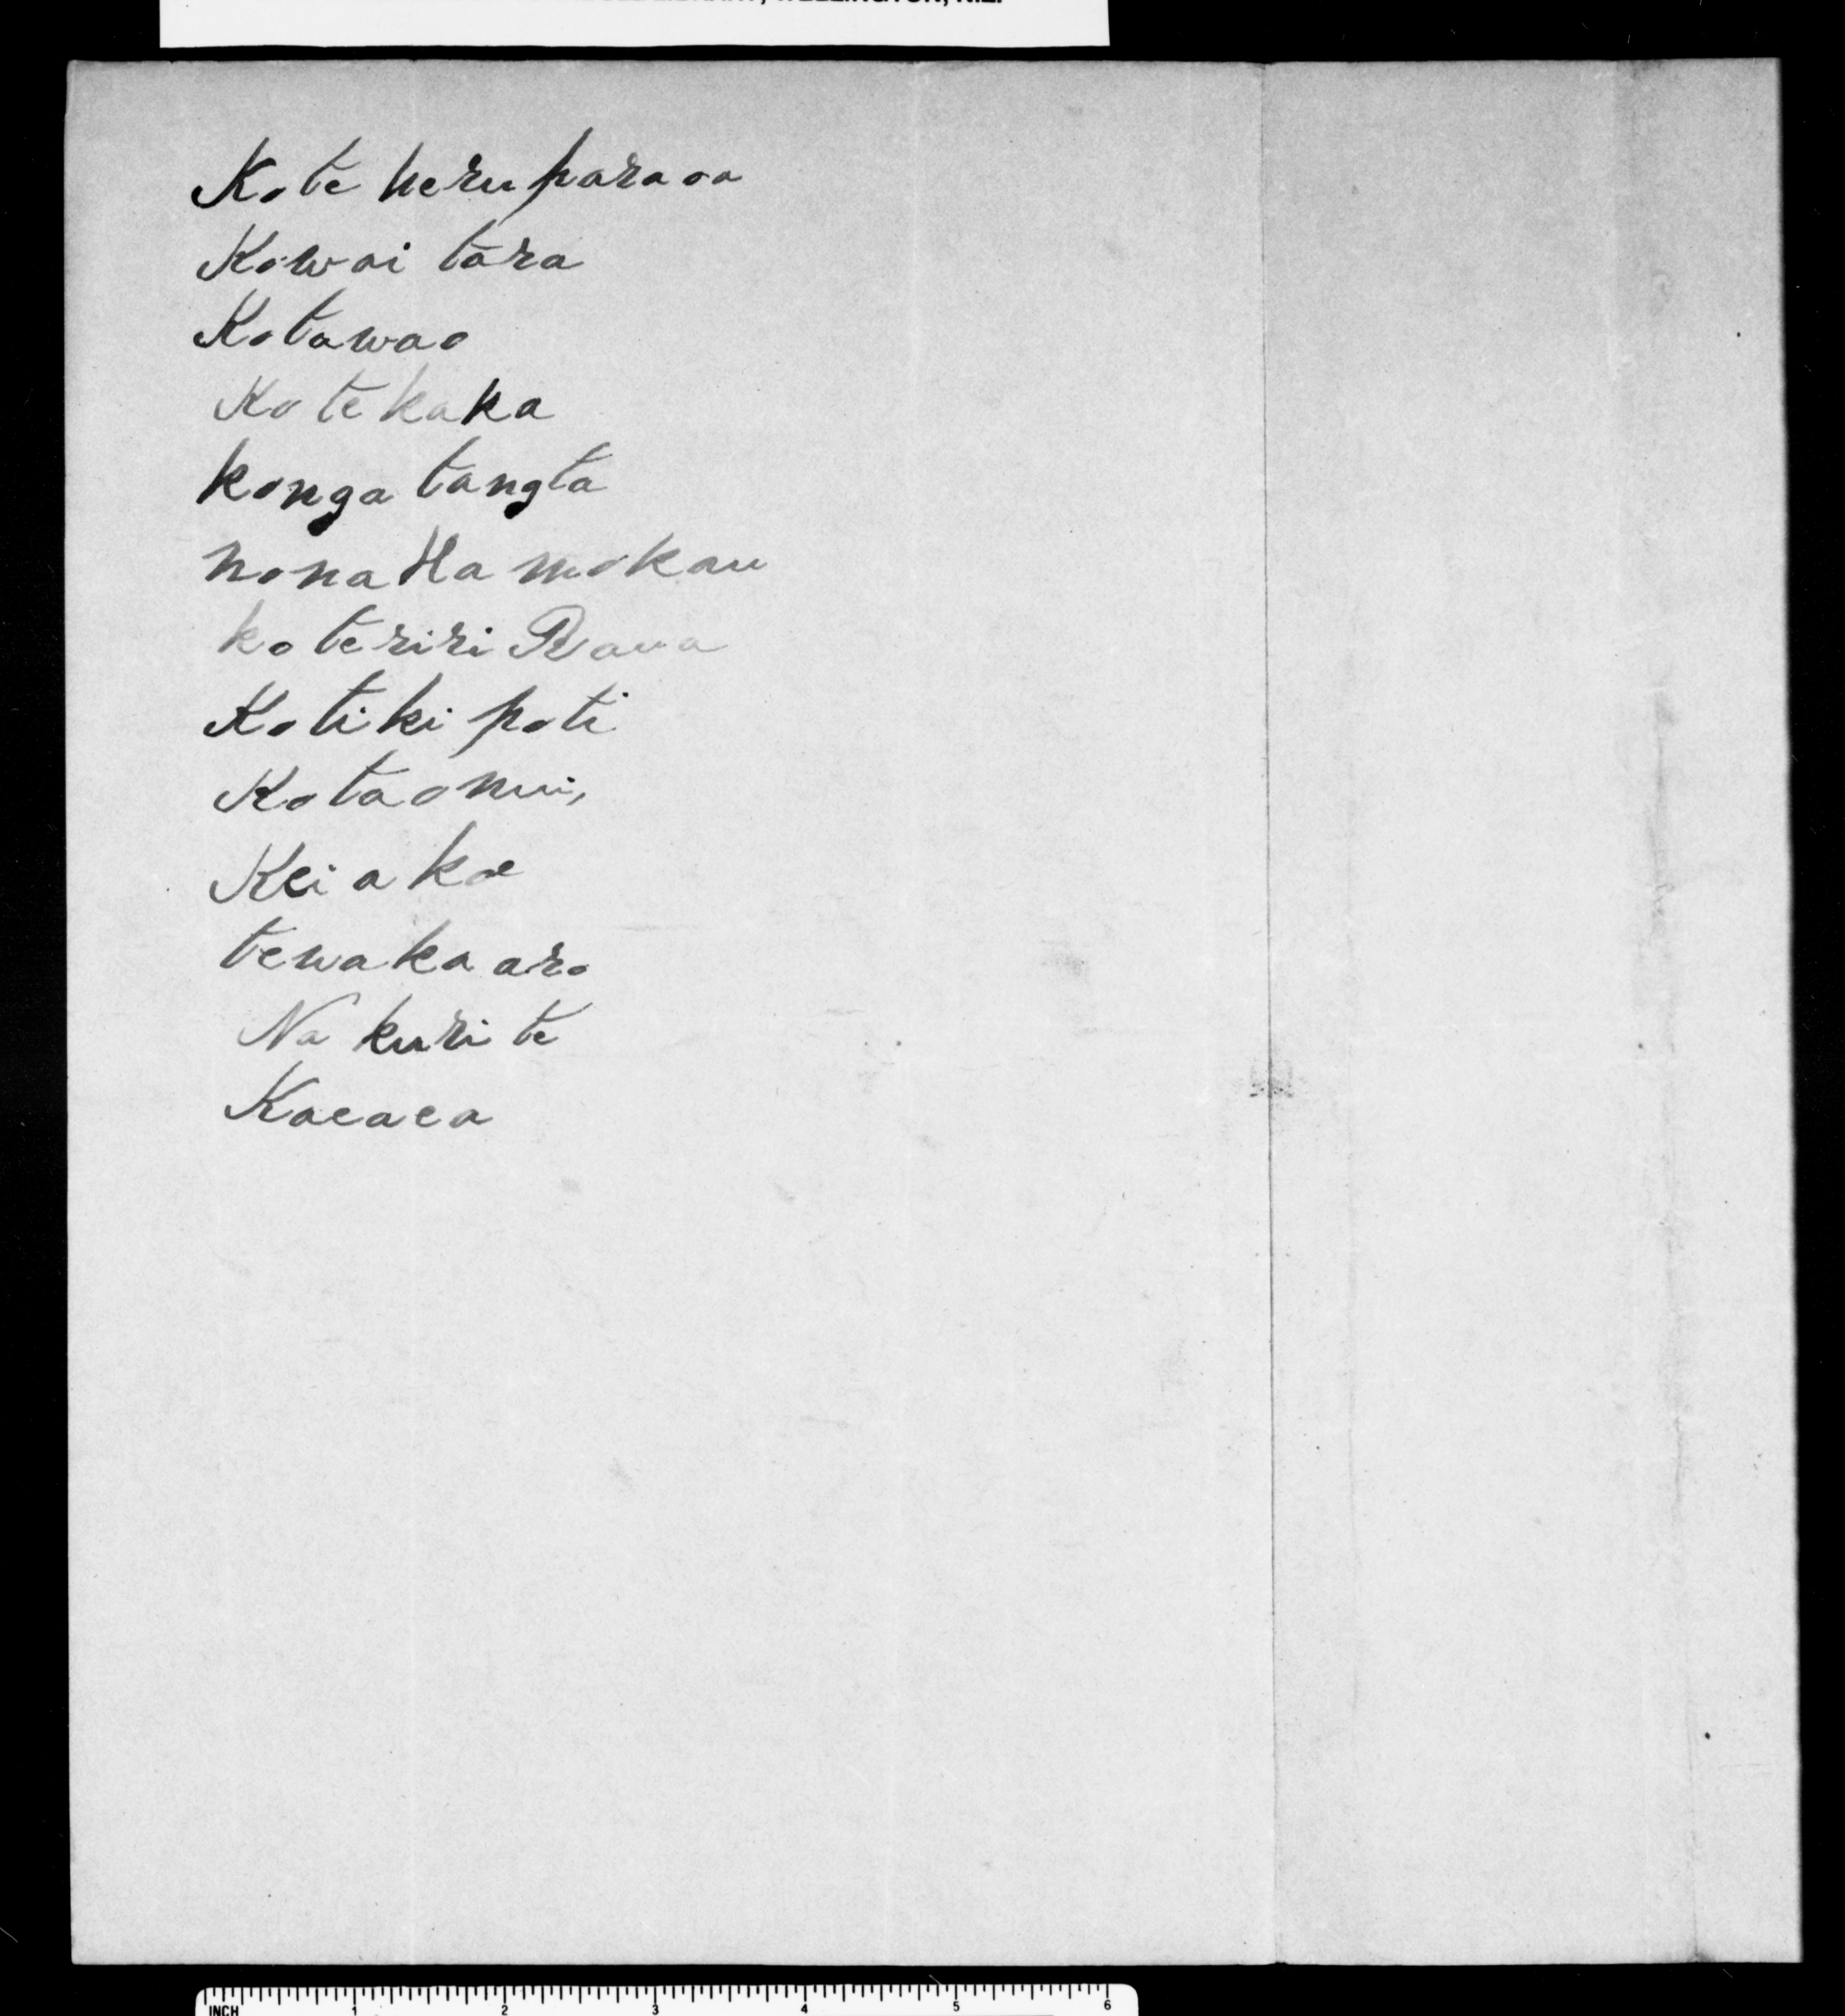 Ko te heru paraoa
Ko wai tara
Ko tawao
Ko te kaka
ko nga tangta
no na Ha mokau
ko te riri Raua
Ko tiki poti
Ko taonui,
Kei a koe
te waka aro
Na kuri te
Kaeaea
INCH 1 2 3 4 5 6